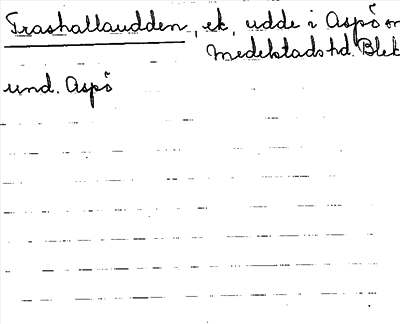 Trashallaudden, ek, udde i Aspö
Medelstads hd. Blek
und. Aspö